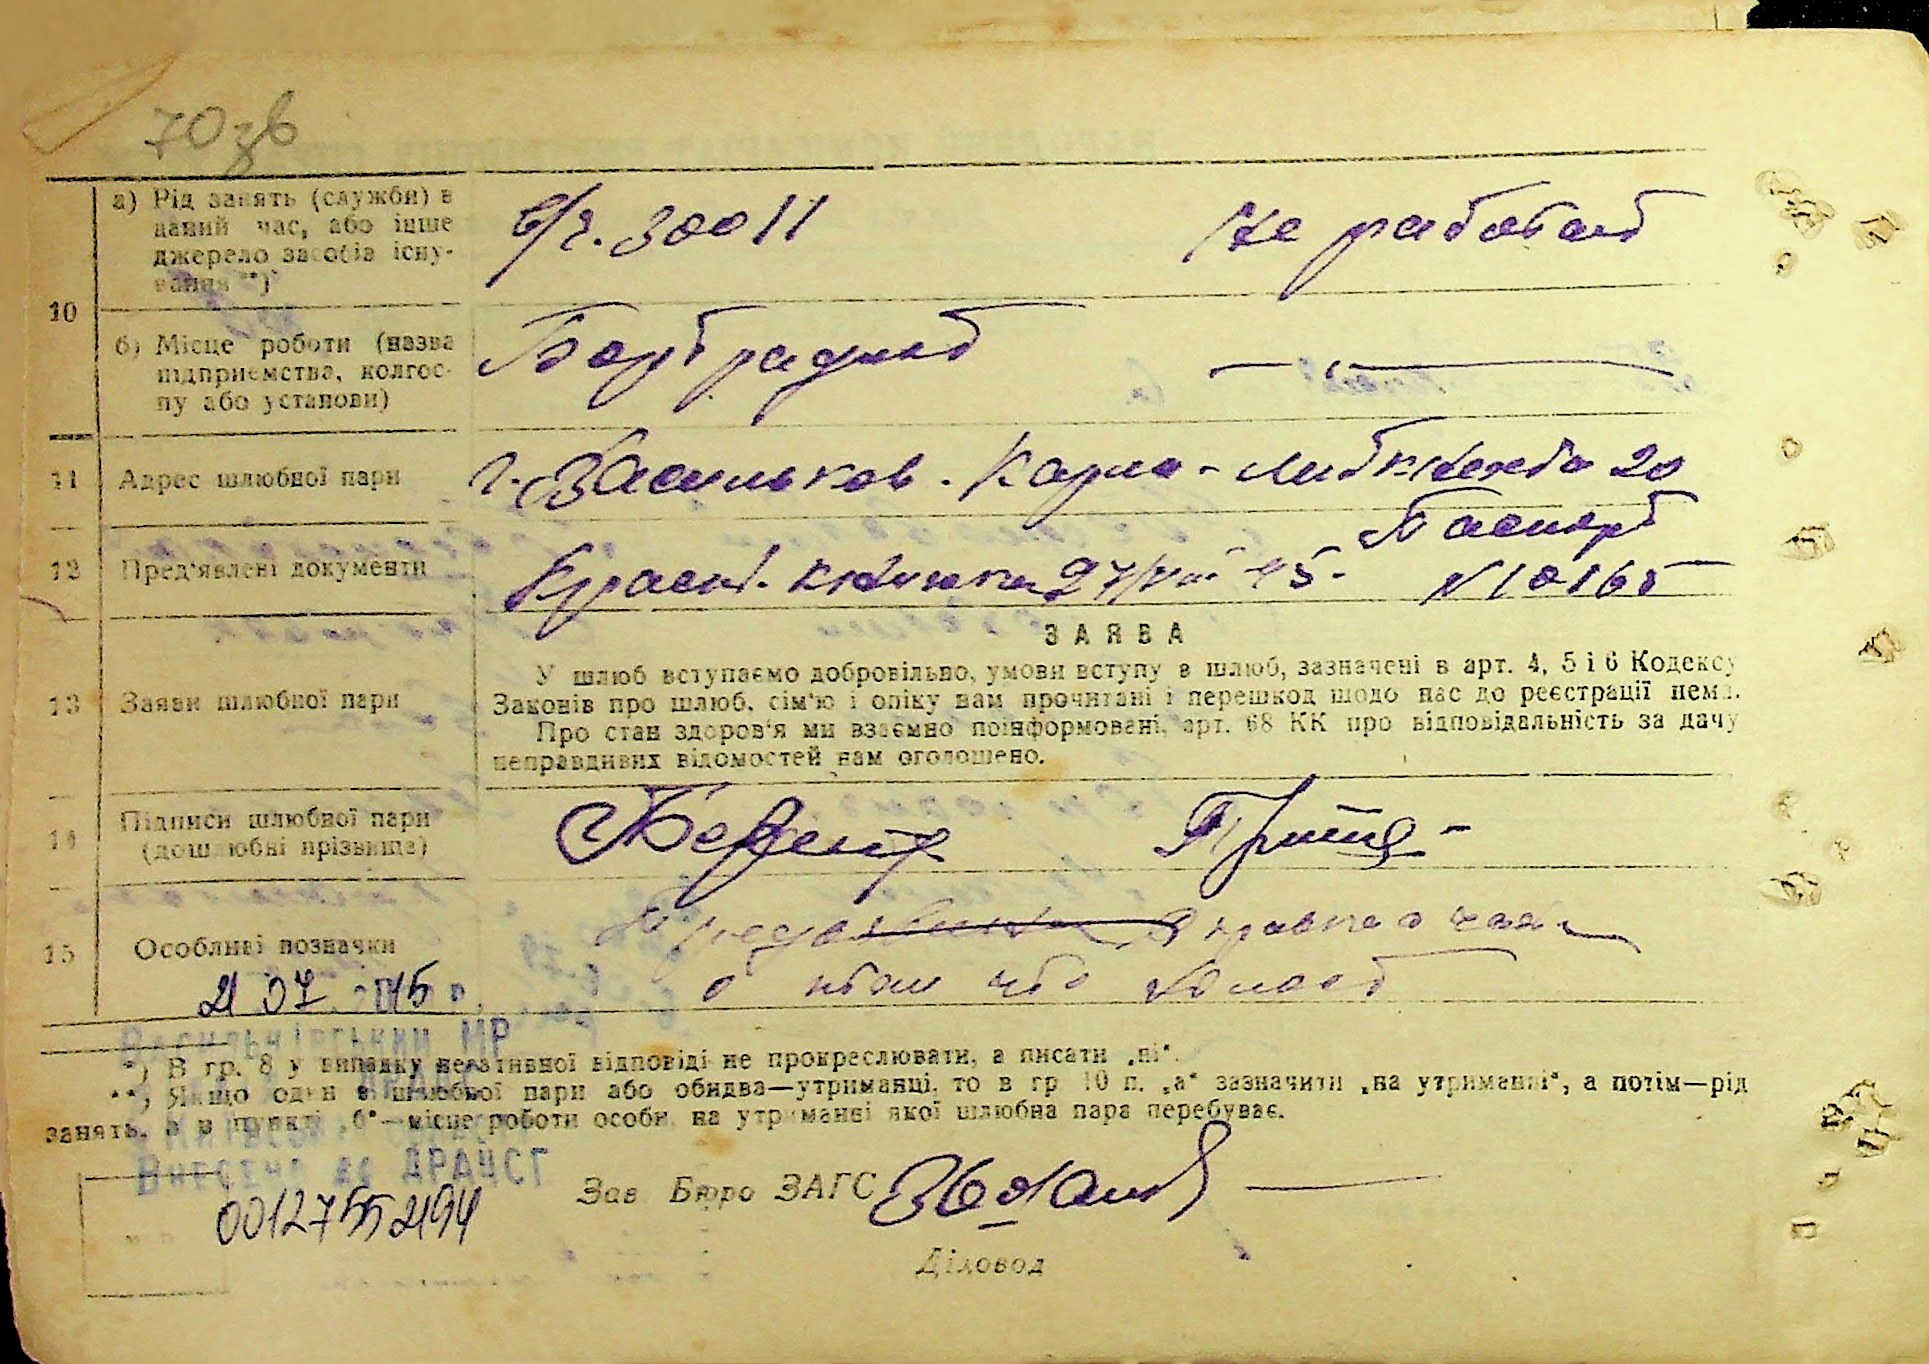 70зв
а) Рід занять (служби) в
даний час, або інше
джерело засобів існу-
вання **)
в/ч. 30011
Не работает
10
б) Місце роботи (назва
підприємства, колгос-
пу або установи)
Бортрадист
11 Адрес шлюбної пари
г. Васильков. Карла-Либкнехта 20
12 Пред'явлені документи
Красн. книжка 27/VIII 45.
Паспорт
N 10165
ЗАЯВА
13 Заяви шлюбної пари
У шлюб вступаємо добровільно, умови вступу в шлюб, зазначені в арт. 4, 5 і 6 Кодексу
Законів про шлюб, сім'ю і опіку нам прочитані і перешкод щодо нас до реєстрації нема.
Про стан здоров'я ми взаємно поінформовані, арт. 68 КК про відповідальність за дачу
неправдивих відомостей нам оголошено.
14 Підписи шлюбної пари
(дошлюбні прізвища)
15 Особливі позначки
справка о
о том что холост
21.07.2015 р.
Васильківський МР
*) В гр. 8 у випадку негативної відповіді не прокреслювати, а писати „ні“.
**) Якщо один з шлюбної пари або обидва—утриманці, то в гр. 10 п. „а“ зазначити „на утриманні“, а потім—рід
занять, а в пункті „б“—місце роботи особи, на утриманні якої шлюбна пара перебуває.
Внесено до ДРАЦСГ
00127552194
Зав. Бюро ЗАГС
Діловод